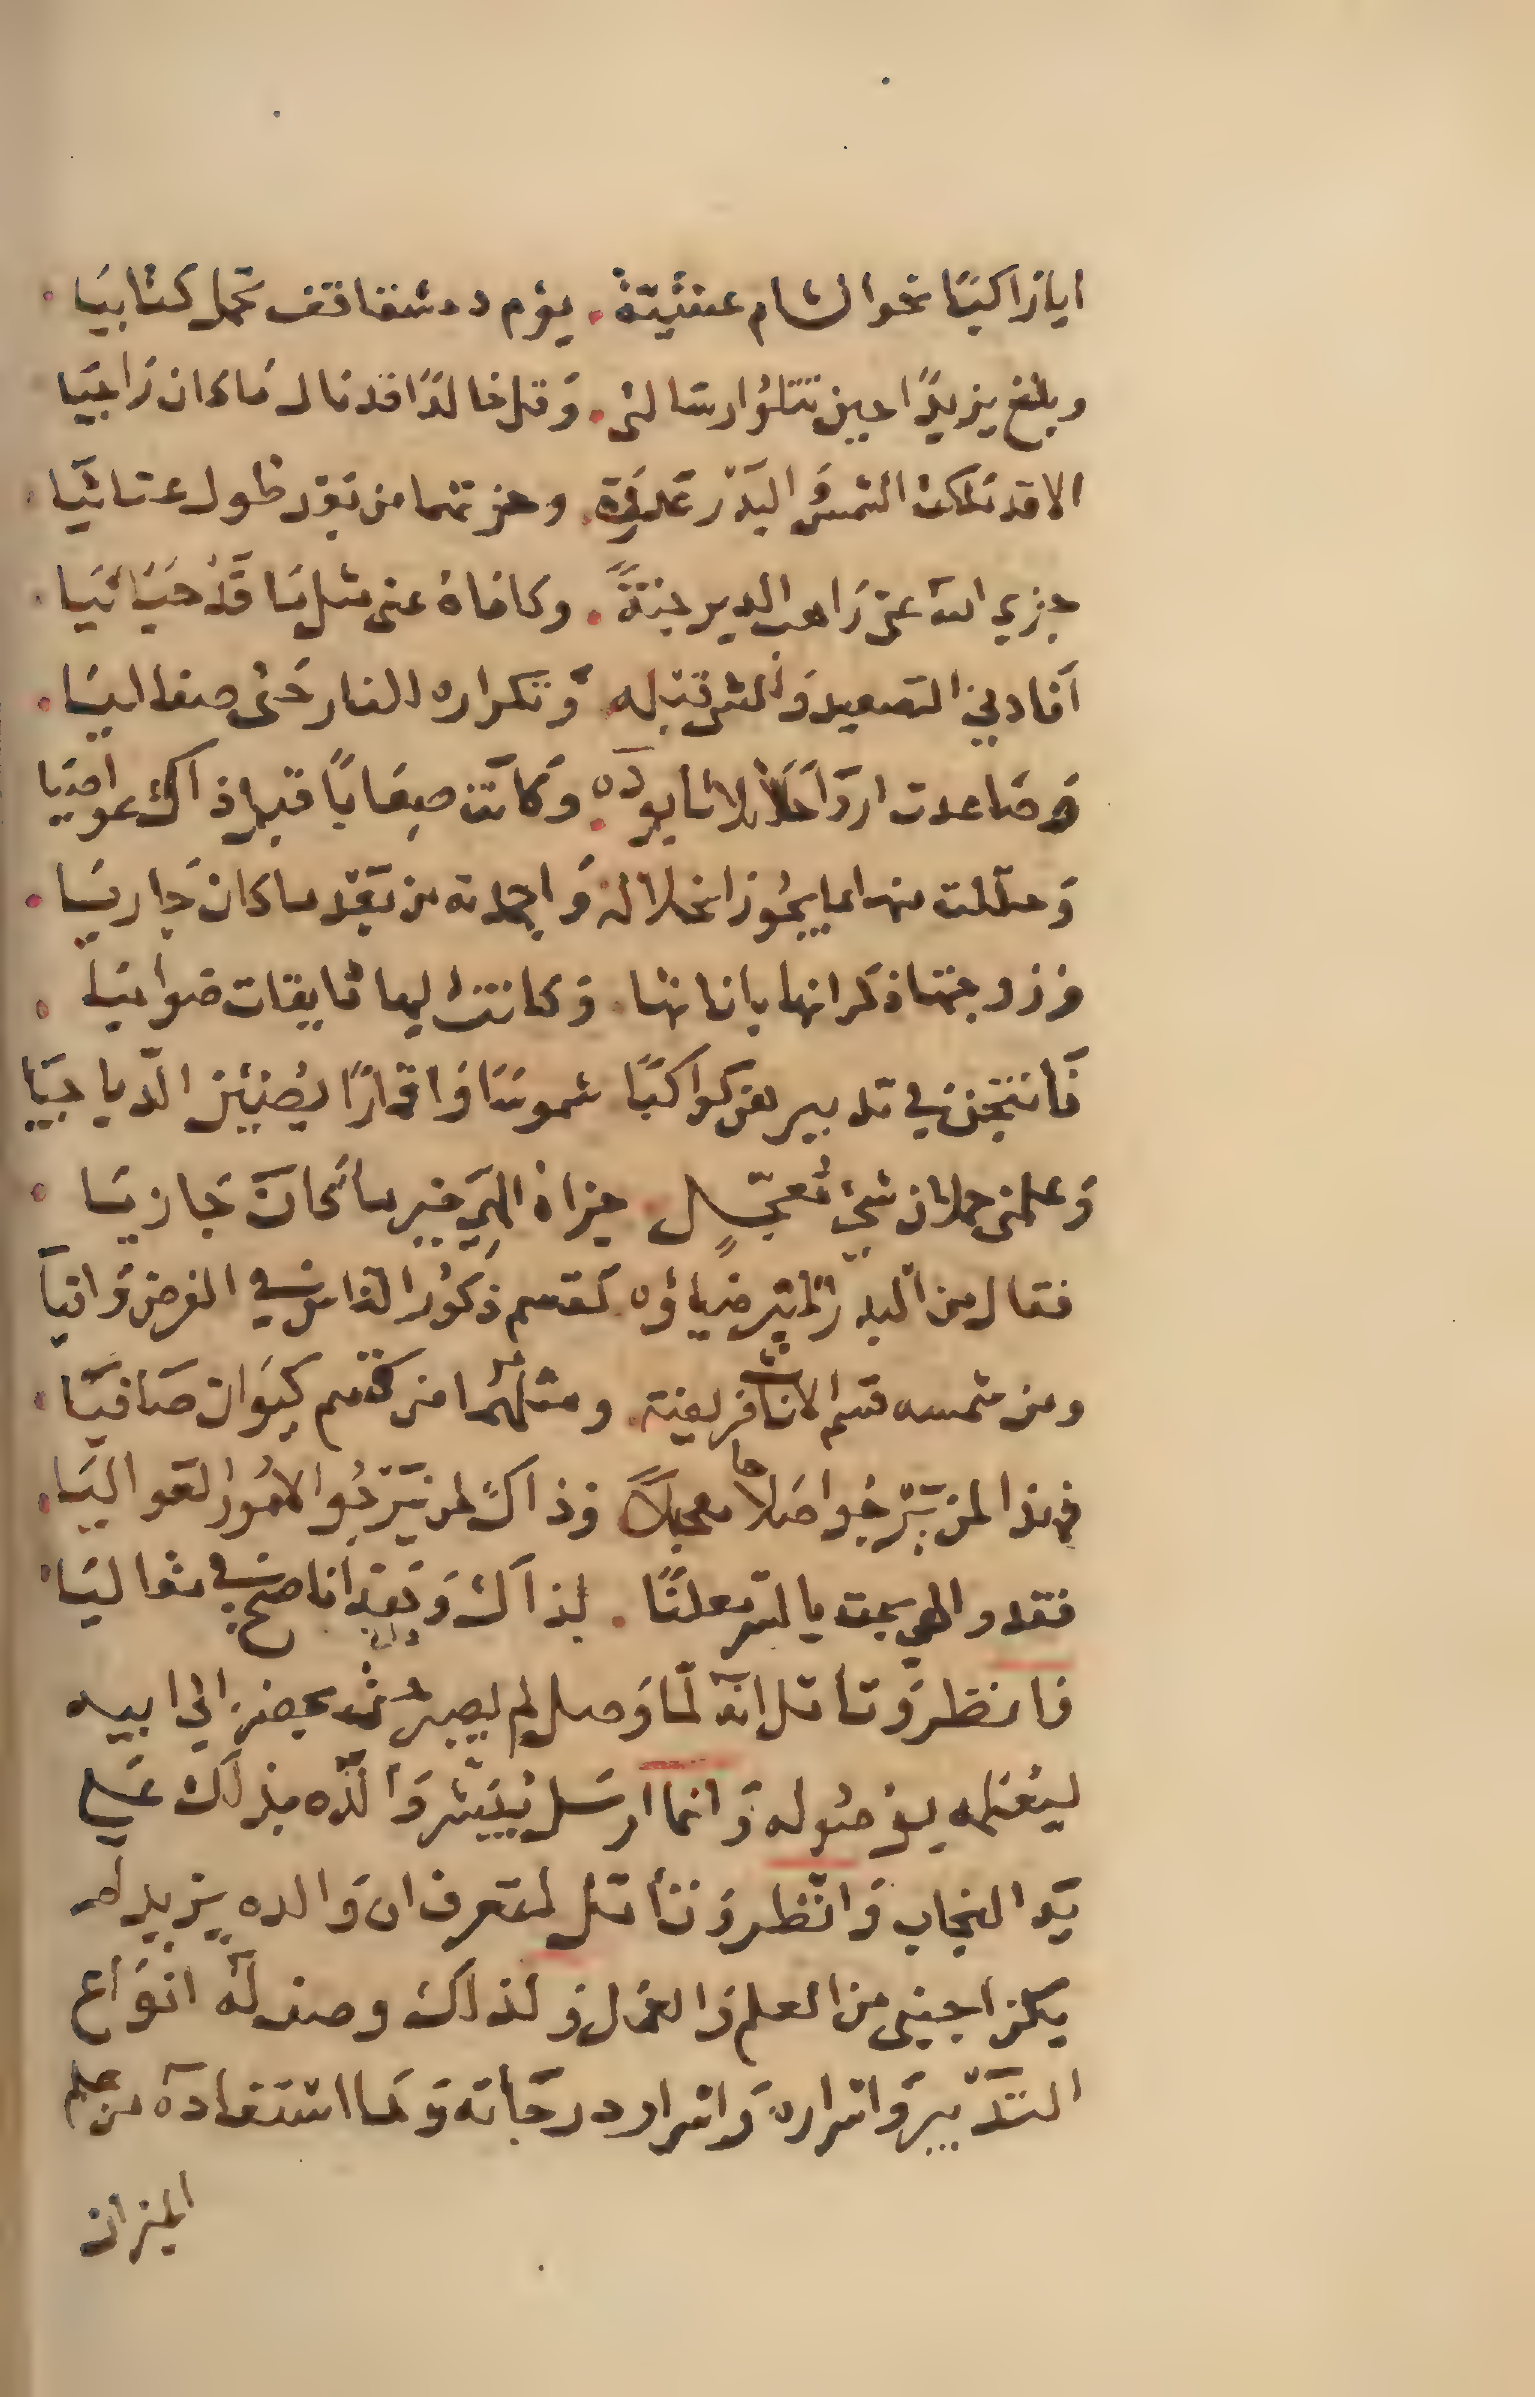 ايا راكبًا نحو الشام عشيّةً . يؤم دمشقا قف تحمل كتابيَا .
وبلغ يزيدًا حين تتلوا رسالتى . وَقل خالدًا قد نال مَا كان رَاجيَا
الا قد ملكت الشمسُ والبَدْرَ عَلَوَةً . وحزتهما من بَعْد طول عنائيَا .
جزي اللهُ عنى رَاهب الدير جنةً . وكافاهُ عنى مثل مَا قَدْ حَبَانيَا .
اَفادني التصعيد وَالمش قبله . وَتكراره النار حَتى صفا ليَا .
فصَاعدت اروَاحًا بلا ثابوده . وَكانت صِعَابًا قبل ذاك عواصيَا
وَحللت منها ما يجُوز انحلاله وَاجمدته من بَعْد ما كان جَاريَا .
فزوجتها ذكرانها باناثها . وَكانت اليها تايقات ضواميَا .
فَانتجن في تدبيرهن كواكبًا شموسًا وَاقمارًا يضيئن الدّياجيَا
وَعلمنى حملان شئ مُعجّلٍ . جزاهُ الهِي خير ما كَانَ جَازيَا .
فقال من البدر المتير ضياؤه كقسم ذكُور الناس في الفرض وَافيَا
ومن شمسه قسم الاناث فريضة . ومثلهُما من قسم كيوَان صَافيَا .
فهذا لمن يَرْجُوا صَلاحا معجلاً وَذاك لمن يَرجُو الامُورَ العَواليَا .
فقد والهي بحت بالسّر معلنًا . لذاك وَبَعْد اناصح في مقاليَا .
فانظر وَتأمل انهُ لمّا وَصل لم يصبر حتى يمضى الى ابيه
ليُعْلمه بوُصُوله وَانما ارسَل يُبَشر وَالدَه بذلكَ عَلي
يَد النجاب وَانْظر وَتأمل لتعرف ان وَالده يزيد لم
يكن اجنبى من العلم وَالعَمل وَلذلك وصف لَهُ انْوَاع
التَدْبير وَاسْراره وَاسْرار درجَاته وَمَا اسْتفادَه من علم
الميزان